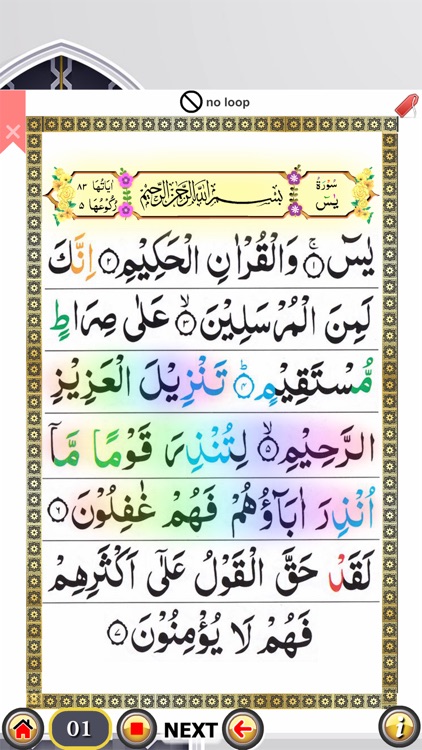 no loop
اٰيَاتُهَا ٨٣
رُكُوْعُهَا ٥
بِسْمِ اللهِ الرَّحْمٰنِ الرَّحِيْمِ
سُوْرَةُ
يٰسٓ
يٰسٓ ۚ﴿١﴾ وَالْقُرْاٰنِ الْحَكِيْمِ ﴿٢﴾ اِنَّكَ
لَمِنَ الْمُرْسَلِيْنَ ۙ﴿٣﴾ عَلٰى صِرَاطٍ
مُّسْتَقِيْمٍ ؕ﴿٤﴾ تَنْزِيْلَ الْعَزِيْزِ
الرَّحِيْمِ ۙ﴿٥﴾ لِتُنْذِرَ قَوْمًا مَّاۤ
اُنْذِرَ اٰبَآؤُهُمْ فَهُمْ غٰفِلُوْنَ ﴿٦﴾
لَقَدْ حَقَّ الْقَوْلُ عَلٰٓى اَكْثَرِهِمْ
فَهُمْ لَا يُؤْمِنُوْنَ ﴿٧﴾
01 NEXT i